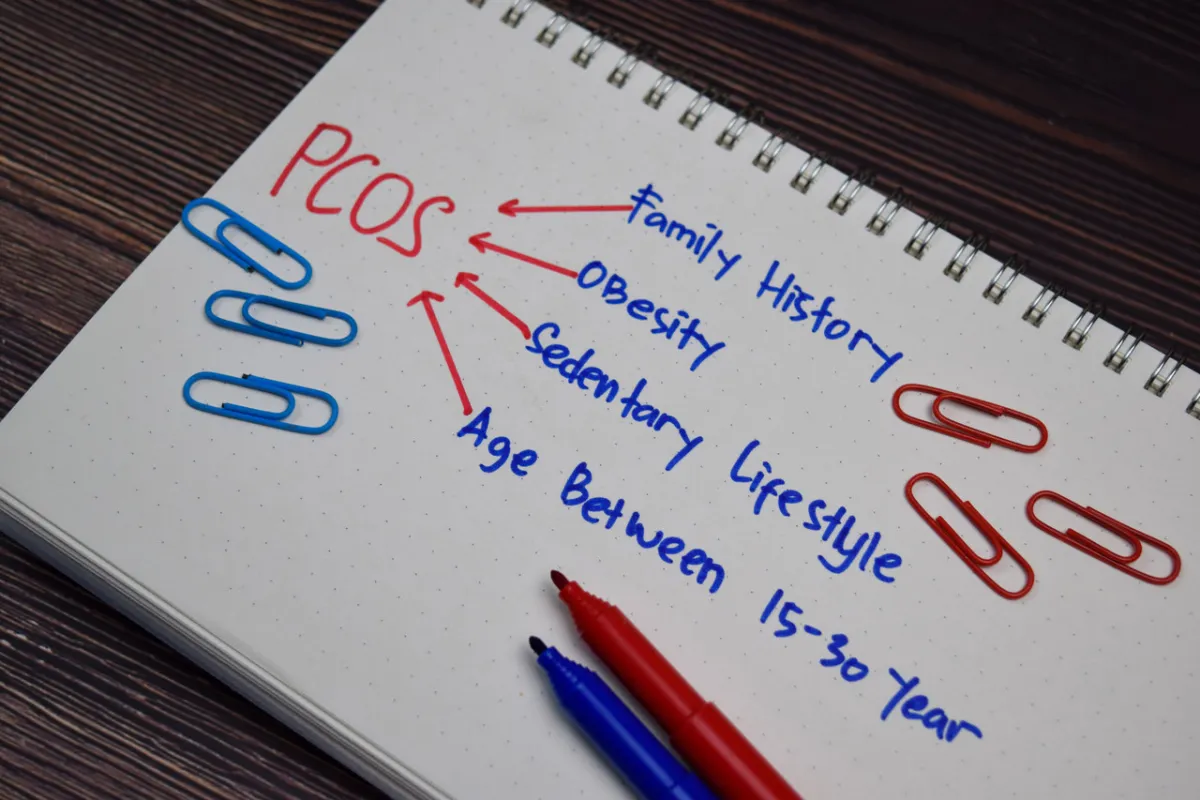 PCOS
Family History
OBesity
Sedentary Lifestyle
Age Between 15-30 Year